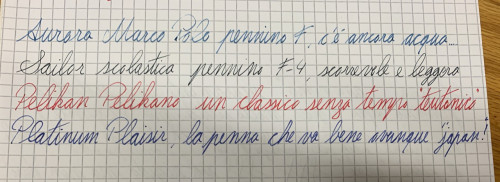 Aurora Marco Polo pennino F, c'é ancora acqua...
Sailor scolastica pennino F-4, scorrevole e leggera
Pelikan Pelikano un classico senza tempo "teutonico"
Platinum Plaisir, la penna che va bene ovunque "japan"!